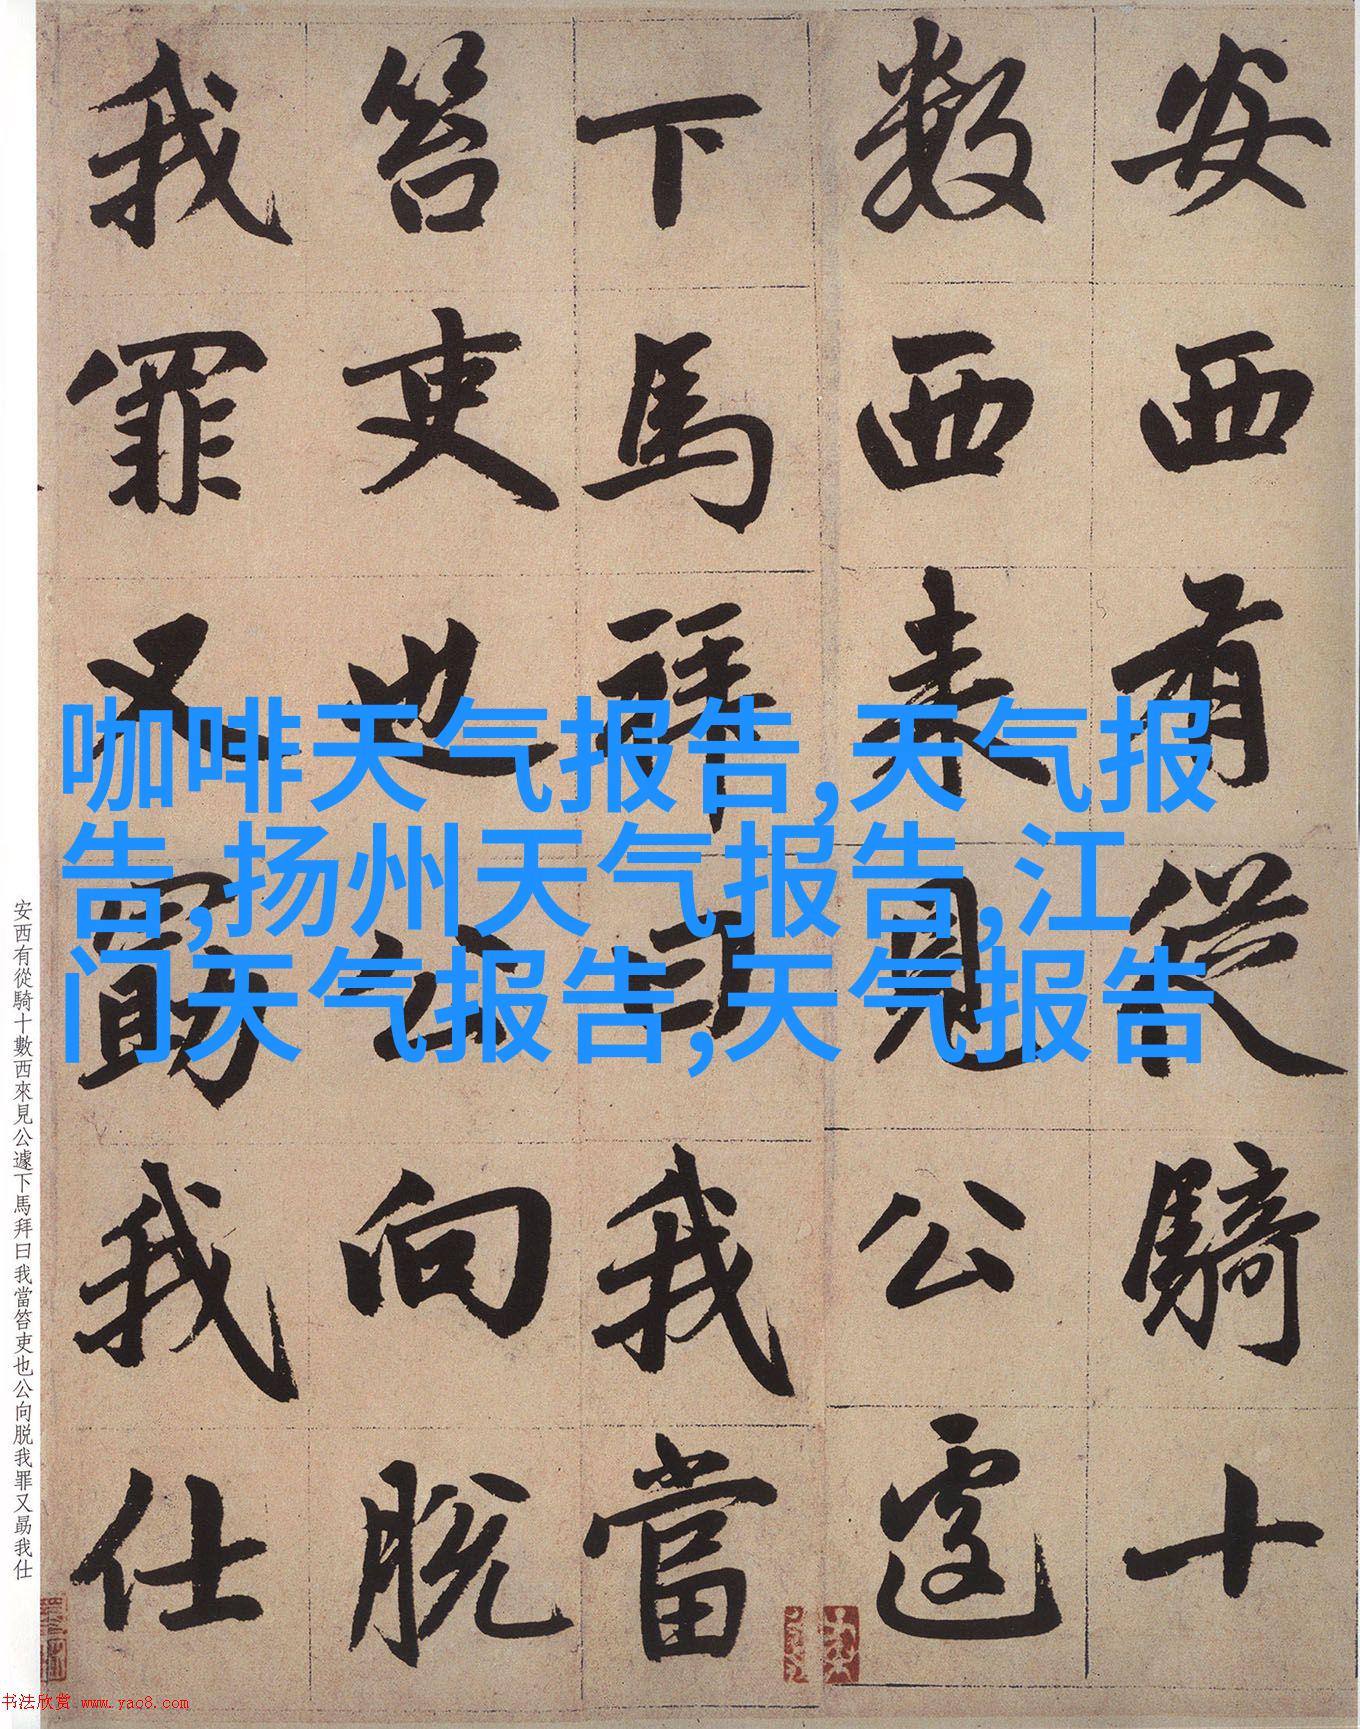 安西有從騎十
數西来見公遽
下馬拜曰我當
笞吏也公向脱
我罪又勖我仕
咖啡天气报告,天气报
告,扬州天气报告,江
门天气报告,天气报告
安西有從騎十數西來見公遽下馬拜曰我當笞吏也公向脱我罪又勖我仕
书法欣赏 www.yac8.com